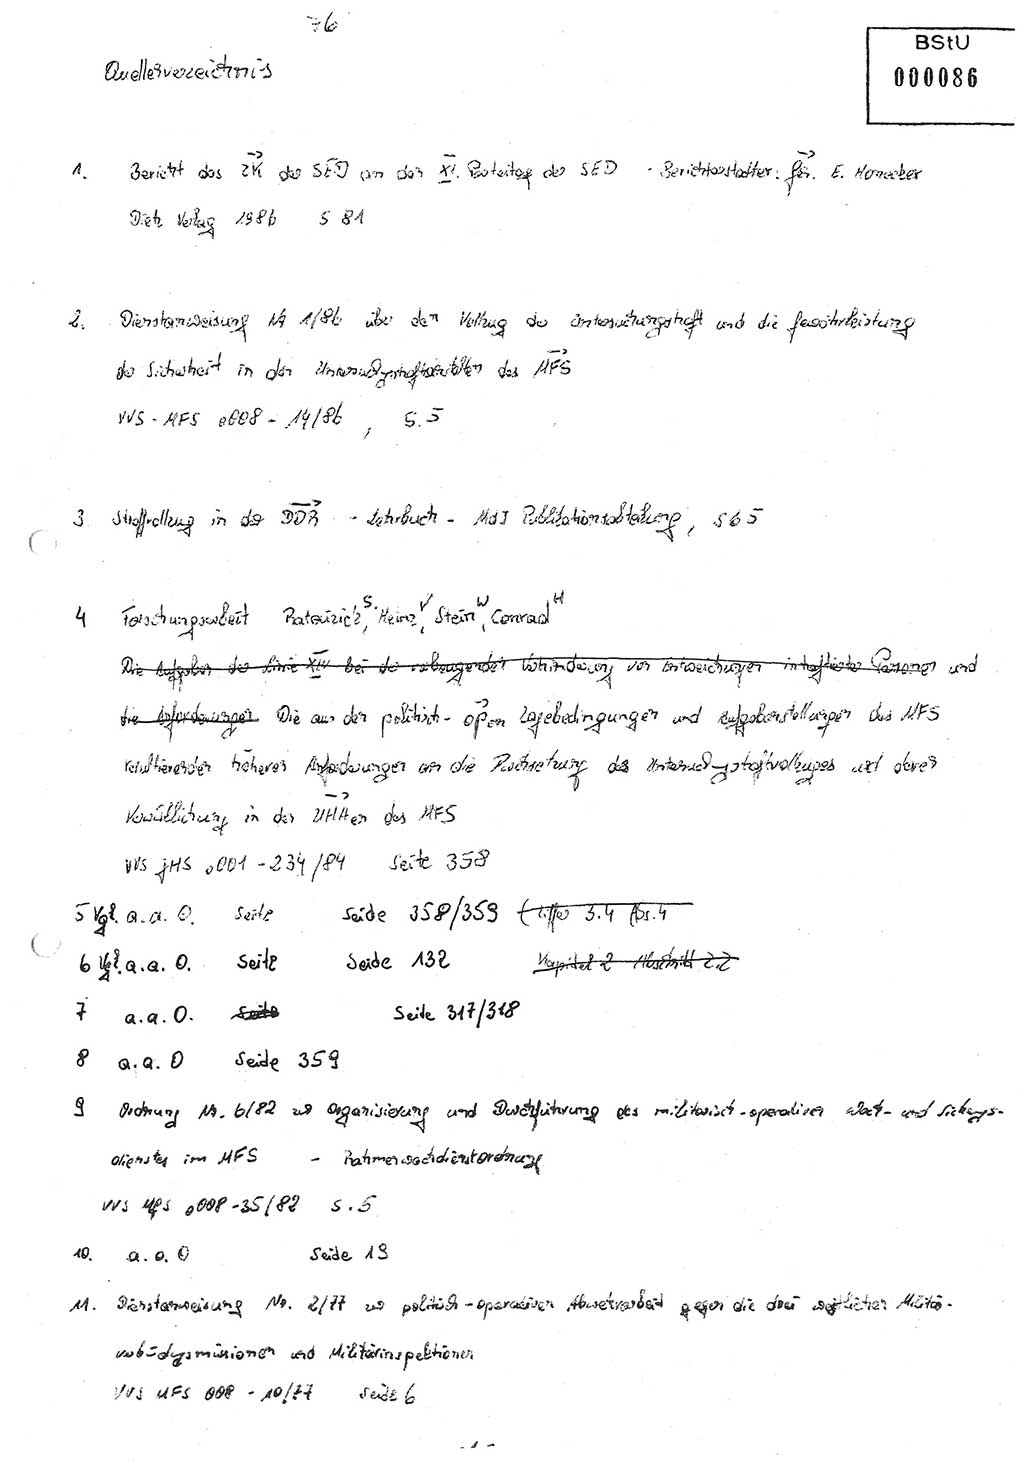 76
BStU
000086
Quellenverzeichnis
1. Bericht des ZK der SED an den XI. Parteitag der SED - Berichterstatter: E. Honecker
Dietz Verlag 1986 S 81
2. Dienstanweisung Nr 1/86 über den Vollzug der Untersuchungshaft und die Gewährleistung
der Sicherheit in den Untersuchungshaftanstalten des MFS
VVS - MFS o008 - 14/86, S. 5
3 Strafvollzug in der DDR - Lehrbuch - MdI Publikationsabteilung, S 65
4 Forschungsarbeit Rataizick S., Heinz V, Stein W, Conrad H
Die Aufgaben der Linie XIV bei der vorbeugenden Verhinderung von Entweichungen inhaftierter Personen und
die Anforderungen Die aus den politisch-open Lagebedingungen und Aufgabenstellungen des MFS
resultierenden höheren Anforderungen an die Durchsetzung des Untersuchungshaftvollzuges und deren
Verwirklichung in den UHAen des MFS
VVS JHS o001 - 234/84 Seite 358
5 Vgl. a. a. O. Seite Seide 358/359 Ziffer 3.4 Abs. 4
6 Vgl. a. a. O. Seite Seide 132 Kapitel 2 Abschnitt 2.2
7 a.a.O. Seite Seite 317/318
8 a. a. O Seide 359
9 Ordnung Nr. 6/82 zur Organisierung und Durchführung des militärisch-operativen Wach- und Sicherungs-
dienstes im MFS - Rahmenwachdienstordnung
VVS MfS o008-35/82 S. 5
10. a. a. O Seide 19
11. Dienstanweisung Nr. 2/77 zur politisch-operativen Abwehrarbeit gegen die drei westlichen Militär-
verbindungsmissionen und Militärinspektionen
VVS MFS 008 - 10/77 Seide 6
- 1 -